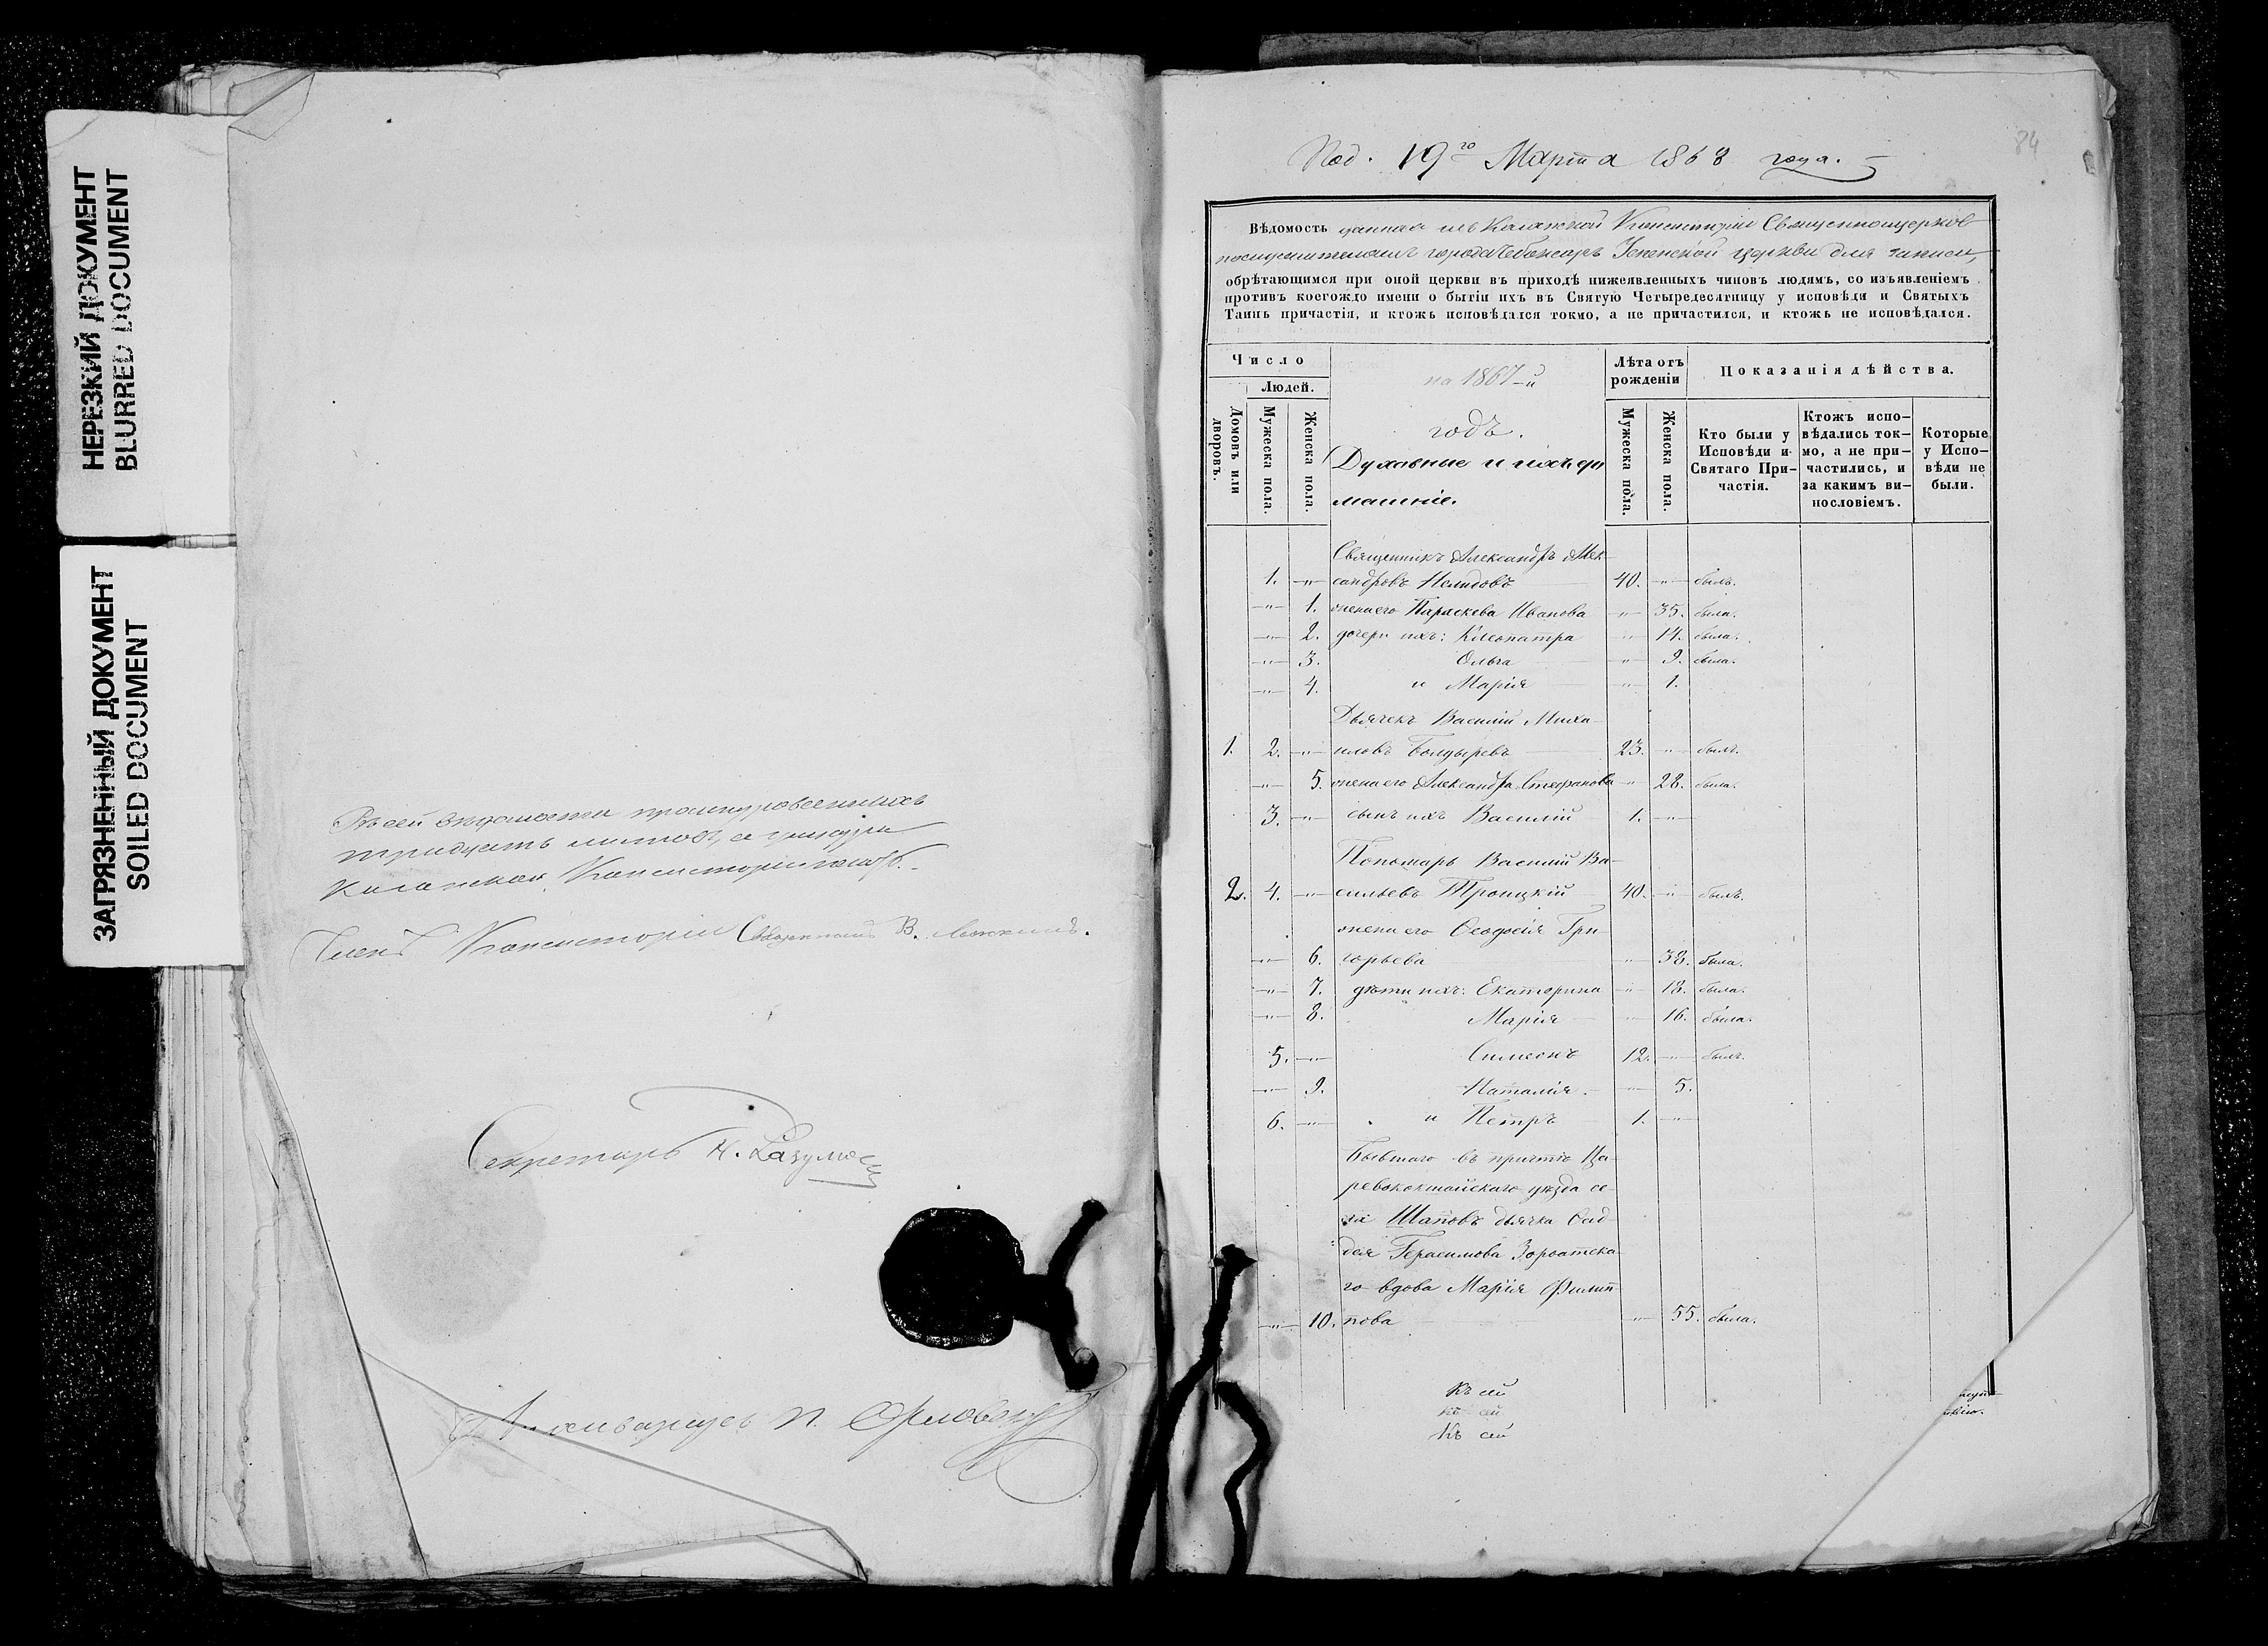 НЕРЕЗКИЙ ДОКУМЕНТ
BLURRED DOCUMENT
ЗАГРЯЗНЕННЫЙ ДОКУМЕНТ
SOILED DOCUMENT
Въ сей вѣдомости прошнурованныхъ
тридцать листовъ, а шнура
Казанская Консисторія
Членъ Консисторіи Священникъ В.
Секретарь Н.
Архиваріусъ П.
84
Под. 19го Марта 1868 года.
Вѣдомость данная изъ Казанской Консисторіи Священноцерков
нослужителямъ города Чебоксаръ церкви для записи
обрѣтающимся при оной церкви въ приходѣ нижеявленныхъ чиновъ людямъ, со изъявленіемъ
противъ коегождо имени о бытіи ихъ въ Святую Четыредесятницу у исповѣди и Святыхъ
Таинъ причастія, и ктожъ исповѣдался токмо, а не причастился, и ктожъ не исповѣдался.
Число
Людей.
Домовъ или дворовъ.
Мужеска пола.
Женска пола.
на 1867-й
годъ.
Духовные и ихъ до
машніе.
Лѣта отъ
рожденіи
Мужеска пола.
Женска пола.
Показанія дѣйства.
Кто были у
Исповѣди и
Святаго При-
частія.
Ктожъ испо-
вѣдались ток-
мо, а не при-
частились, и
за какимъ ви-
нословіемъ.
Которые
у Испо-
вѣди не
были.
Священникъ Александръ Алек
1. -"- сандровъ Нелидовъ 40. -"- былъ.
-"- 1. жена его Параскева Иванова -"- 35. была.
-"- 2. дочери ихъ: Клеопатра -"- 14. была.
-"- 3. Ольга -"- 9. была.
-"- 4. и Марія -"- 1.
Дьячекъ Василій Миха-
1. 2. -"- иловъ Болдыревъ 23. -"- былъ.
-"- 5. жена его Александра Стефанова -"- 28. была.
3. -"- сынъ ихъ Василій 1. -"-
Пономарь Василій Ва-
2. 4. -"- сильевъ Троицкій 40. -"- былъ.
жена его Ѳеодосія Гри-
-"- 6. горьева -"- 38. была.
-"- 7. дѣти ихъ: Екатерина -"- 18. была.
-"- 8. Марія -"- 16. была.
5. -"- Симеонъ 12. -"- былъ.
-"- 9. Наталія -"- 5.
6. -"- и Петръ 1. -"-
Бывшаго въ причтѣ Ца-
ревококшайскаго уѣзда се-
ла Шаповъ дьячка
Герасимова
го вдова Марія Филип
-"- 10. пова -"- 55. была.
Къ сей
Къ сей
Къ сей